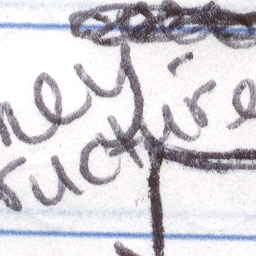 ney
ructure